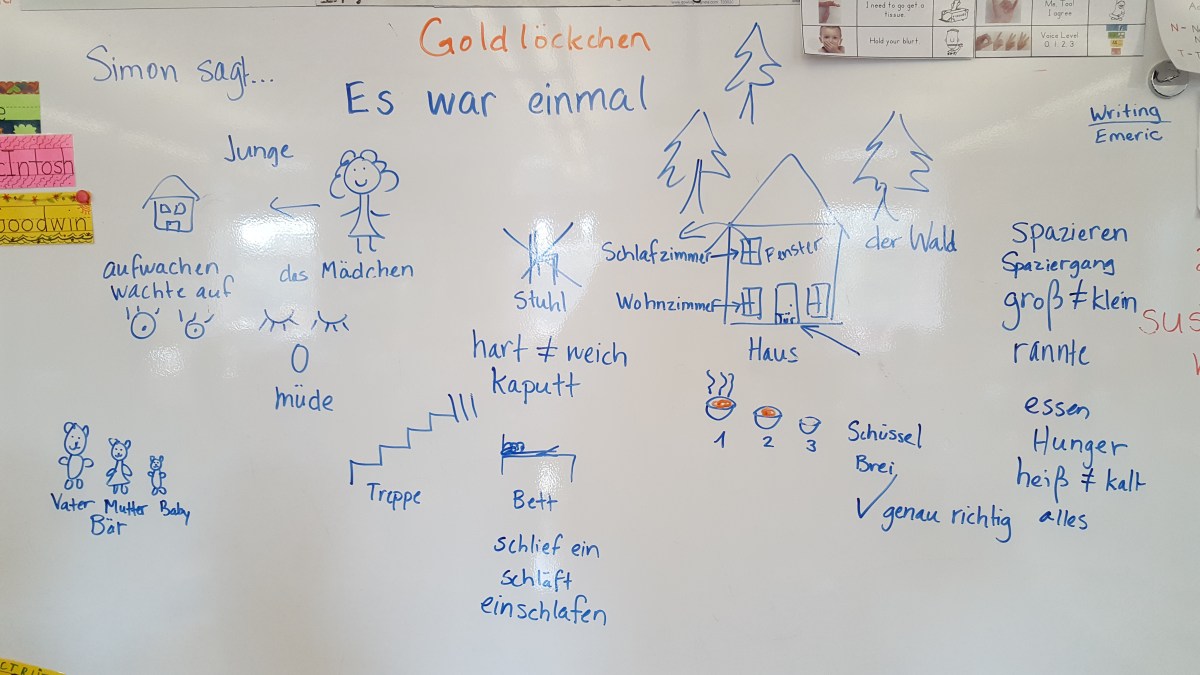 Goldlöckchen
Simon sagt...
Es war einmal
I need to go get a
tissue.
Me, Too!
I agree
Hold your blurt.
Voice Level
0, 1, 2, 3
Writing
Emeric
Intosh
Goodwin
Junge
das Mädchen
aufwachen
wachte auf
müde
Vater Mutter Baby
Bär
Stuhl
hart ≠ weich
kaputt
Treppe
Bett
schlief ein
schläft
einschlafen
der Wald
Schlafzimmer
Fenster
Wohnzimmer
Tür
Haus
1 2 3
Schüssel
Brei
✓ genau richtig
spazieren
Spaziergang
groß ≠ klein
rannte
essen
Hunger
heiß ≠ kalt
alles
sus